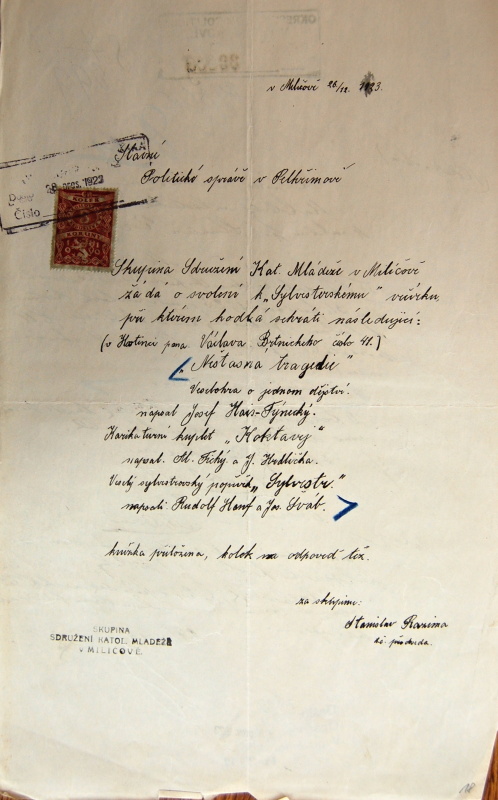 v Miličově 26/12. 1923.
Slavné
Politické správě v Pelhřimově
28. PROS. 1923
Číslo
KOLEK
KORUNA
Skupina Sdružení Kat. Mládeže v Miličově
žádá o svolení k „Sylvesterskému" večírku
při kterém hodlá sehráti následující:
(v Hostinci pana Václava Brtnického číslo 41.)
„Nešťastná tragedie"
Veselohra o jednom dějství.
napsal Josef Hais-Týnecký.
Karikaturní kuplet „Koktavej"
napsal. Al. Tichý a J. Hedlička.
Veselý sylvestrovský popěvek „Sylvestr."
napsali Rudolf Hanf a Jos. Šváb.
knížka přiložena, kolek na odpověď též.
za skupinu:
Stanislav Razima
předseda.
SKUPINA
SDRUŽENÍ KATOL. MLÁDEŽE
v MILIČOVĚ.